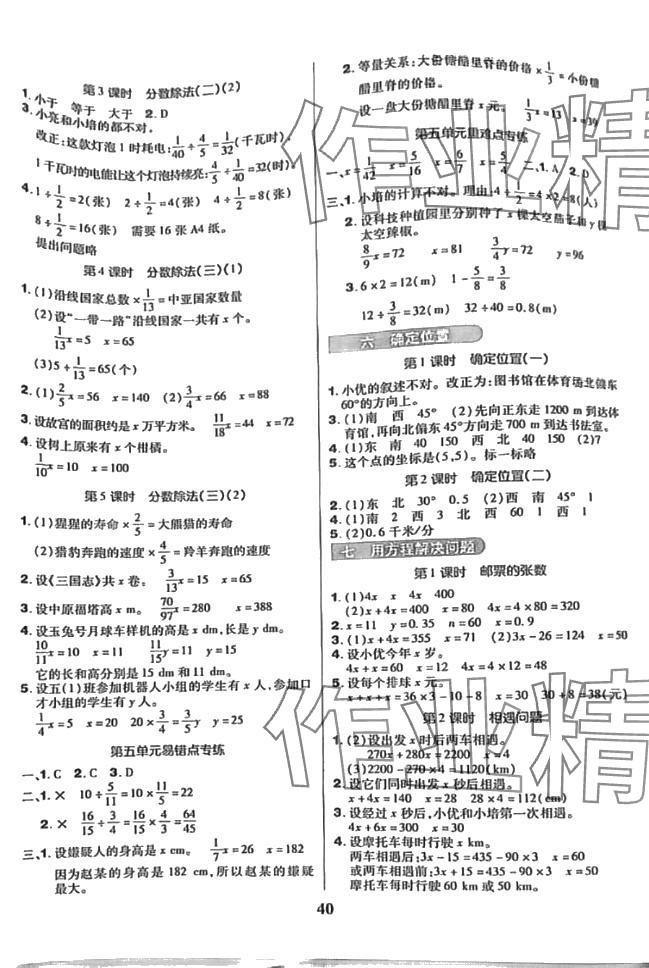 第3课时 分数除法(二)(2)
1. 小于 等于 大于 2. D
3. 小亮和小培的都不对。
改正:这款灯泡1时耗电: 1/40 ÷ 4/5 = 1/32 (千瓦时)。
1千瓦时的电能让这个灯泡持续亮: 4/5 ÷ 1/40 = 32(时)。
4. 1÷1/2=2(张) 8÷1/2=16(张)
8÷1/2=16(张) 需要16张A4纸。
提出问题略
第4课时 分数除法(三)(1)
1. (1)沿线国家总数×1/13=中亚国家数量
(2)设“一带一路”沿线国家一共有x个。
1/13x=5 x=65
(3)5÷1/13=65(个)
2. (1)2/5x=56 x=140 (2)3/4x=6 x=8
3. 设故宫的面积约是x万平方米。 11/18x=44 x=72
4. 设树上原来有x个柑橘。
1/10x=10 x=100
第5课时 分数除法(三)(2)
1. (1)猩猩的寿命×2/5=大熊猫的寿命
(2)猎豹奔跑的速度×4/5=羚羊奔跑的速度
2. 设《三国志》共x卷。 3/13x=15 x=65
3. 设中原福塔高x m。 70/97x=280 x=388
4. 设玉兔号月球车样机的高是x dm,长是y dm。
10/11x=10 x=11 11/15y=11 y=15
它的长和高分别是15 dm和11 dm。
5. 设五(1)班参加机器人小组的学生有x人,参加口
才小组的学生有y人。
1/4x=5 x=20 20×3/4=y y=15
第五单元易错点专练
一、1. C 2. C 3. D
二、1. × 10÷5/11=10×11/5=22
2. × 16/15÷3/4=16/15×4/3=64/45
三、1. 设嫌疑人的身高是x cm。 1/7x=26 x=182
因为赵某的身高是182 cm,所以赵某的嫌疑
最大。
2. 等量关系:大份糖醋里脊的价格×1/3=小份糖
醋里脊的价格。
设一盘大份糖醋里脊x元。 1/3x=13
第五单元重难点专练
一、x=1/42 x=5/16 x=6/7 x=5/8 二、1. A 2. D
三、1. 小培的计算不对。理由:4÷1/2=4×2=8(人)
2. 设科技种植园里分别种了x棵太空茄子和y棵
太空辣椒。
8/9x=72 x=81 3/4y=72 y=96
3. 6×2=12(m) 1-5/8=3/8
12÷3/8=32(m) 32÷40=0.8(m)
六 确定位置
第1课时 确定位置(一)
1. 小优的叙述不对。改正为:图书馆在体育场北偏东
60°的方向上。
3. (1)南 西 45° (2)先向正东走1200 m到达体
育馆,再向北偏东45°方向走700 m到达书法室。
4. (1)东 南 40 150 西 北 40 150 (2)7
5. 这个点的坐标是(5,5)。标一标略
第2课时 确定位置(二)
2. (1)东 北 30° 0.5 (2)西 南 45° 1
4. (1)南 2 西 3 北 西 60 1
5. (2)0.6千米/分
七 用方程解决问题
第1课时 邮票的张数
1. (1)4x x 4x 400
(2)x+4x=400 x=80 4x=4×80=320
2. x=11 y=0.35 n=60 x=0.9
3. (1)x+4x=355 x=71 (2)3x-26=124 x=50
4. 设小优今年x岁。
4x+x=60 x=12 4x=4×12=48
5. 设每个排球x元。
x+x+x=36×3-10-8 x=30 30+8=38(元)
第2课时 相遇问题
1. (2)设出发x时后两车相遇。
270x+280x=2200 x=4
(3)2200-270×4=1120(km)
2. 设它们同时出发x秒后相遇。
x+4x=140 x=28 28×4=112(cm)
3. 设经过x秒后,小优和小培第一次相遇。
4x+6x=300 x=30
4. 设摩托车每时行驶x km。
两车相遇后:3x-15=435-90×3 x=60
或两车相遇前:3x+15=435-90×3 x=50
摩托车每时行驶60 km或50 km。
40
作业精
作业精